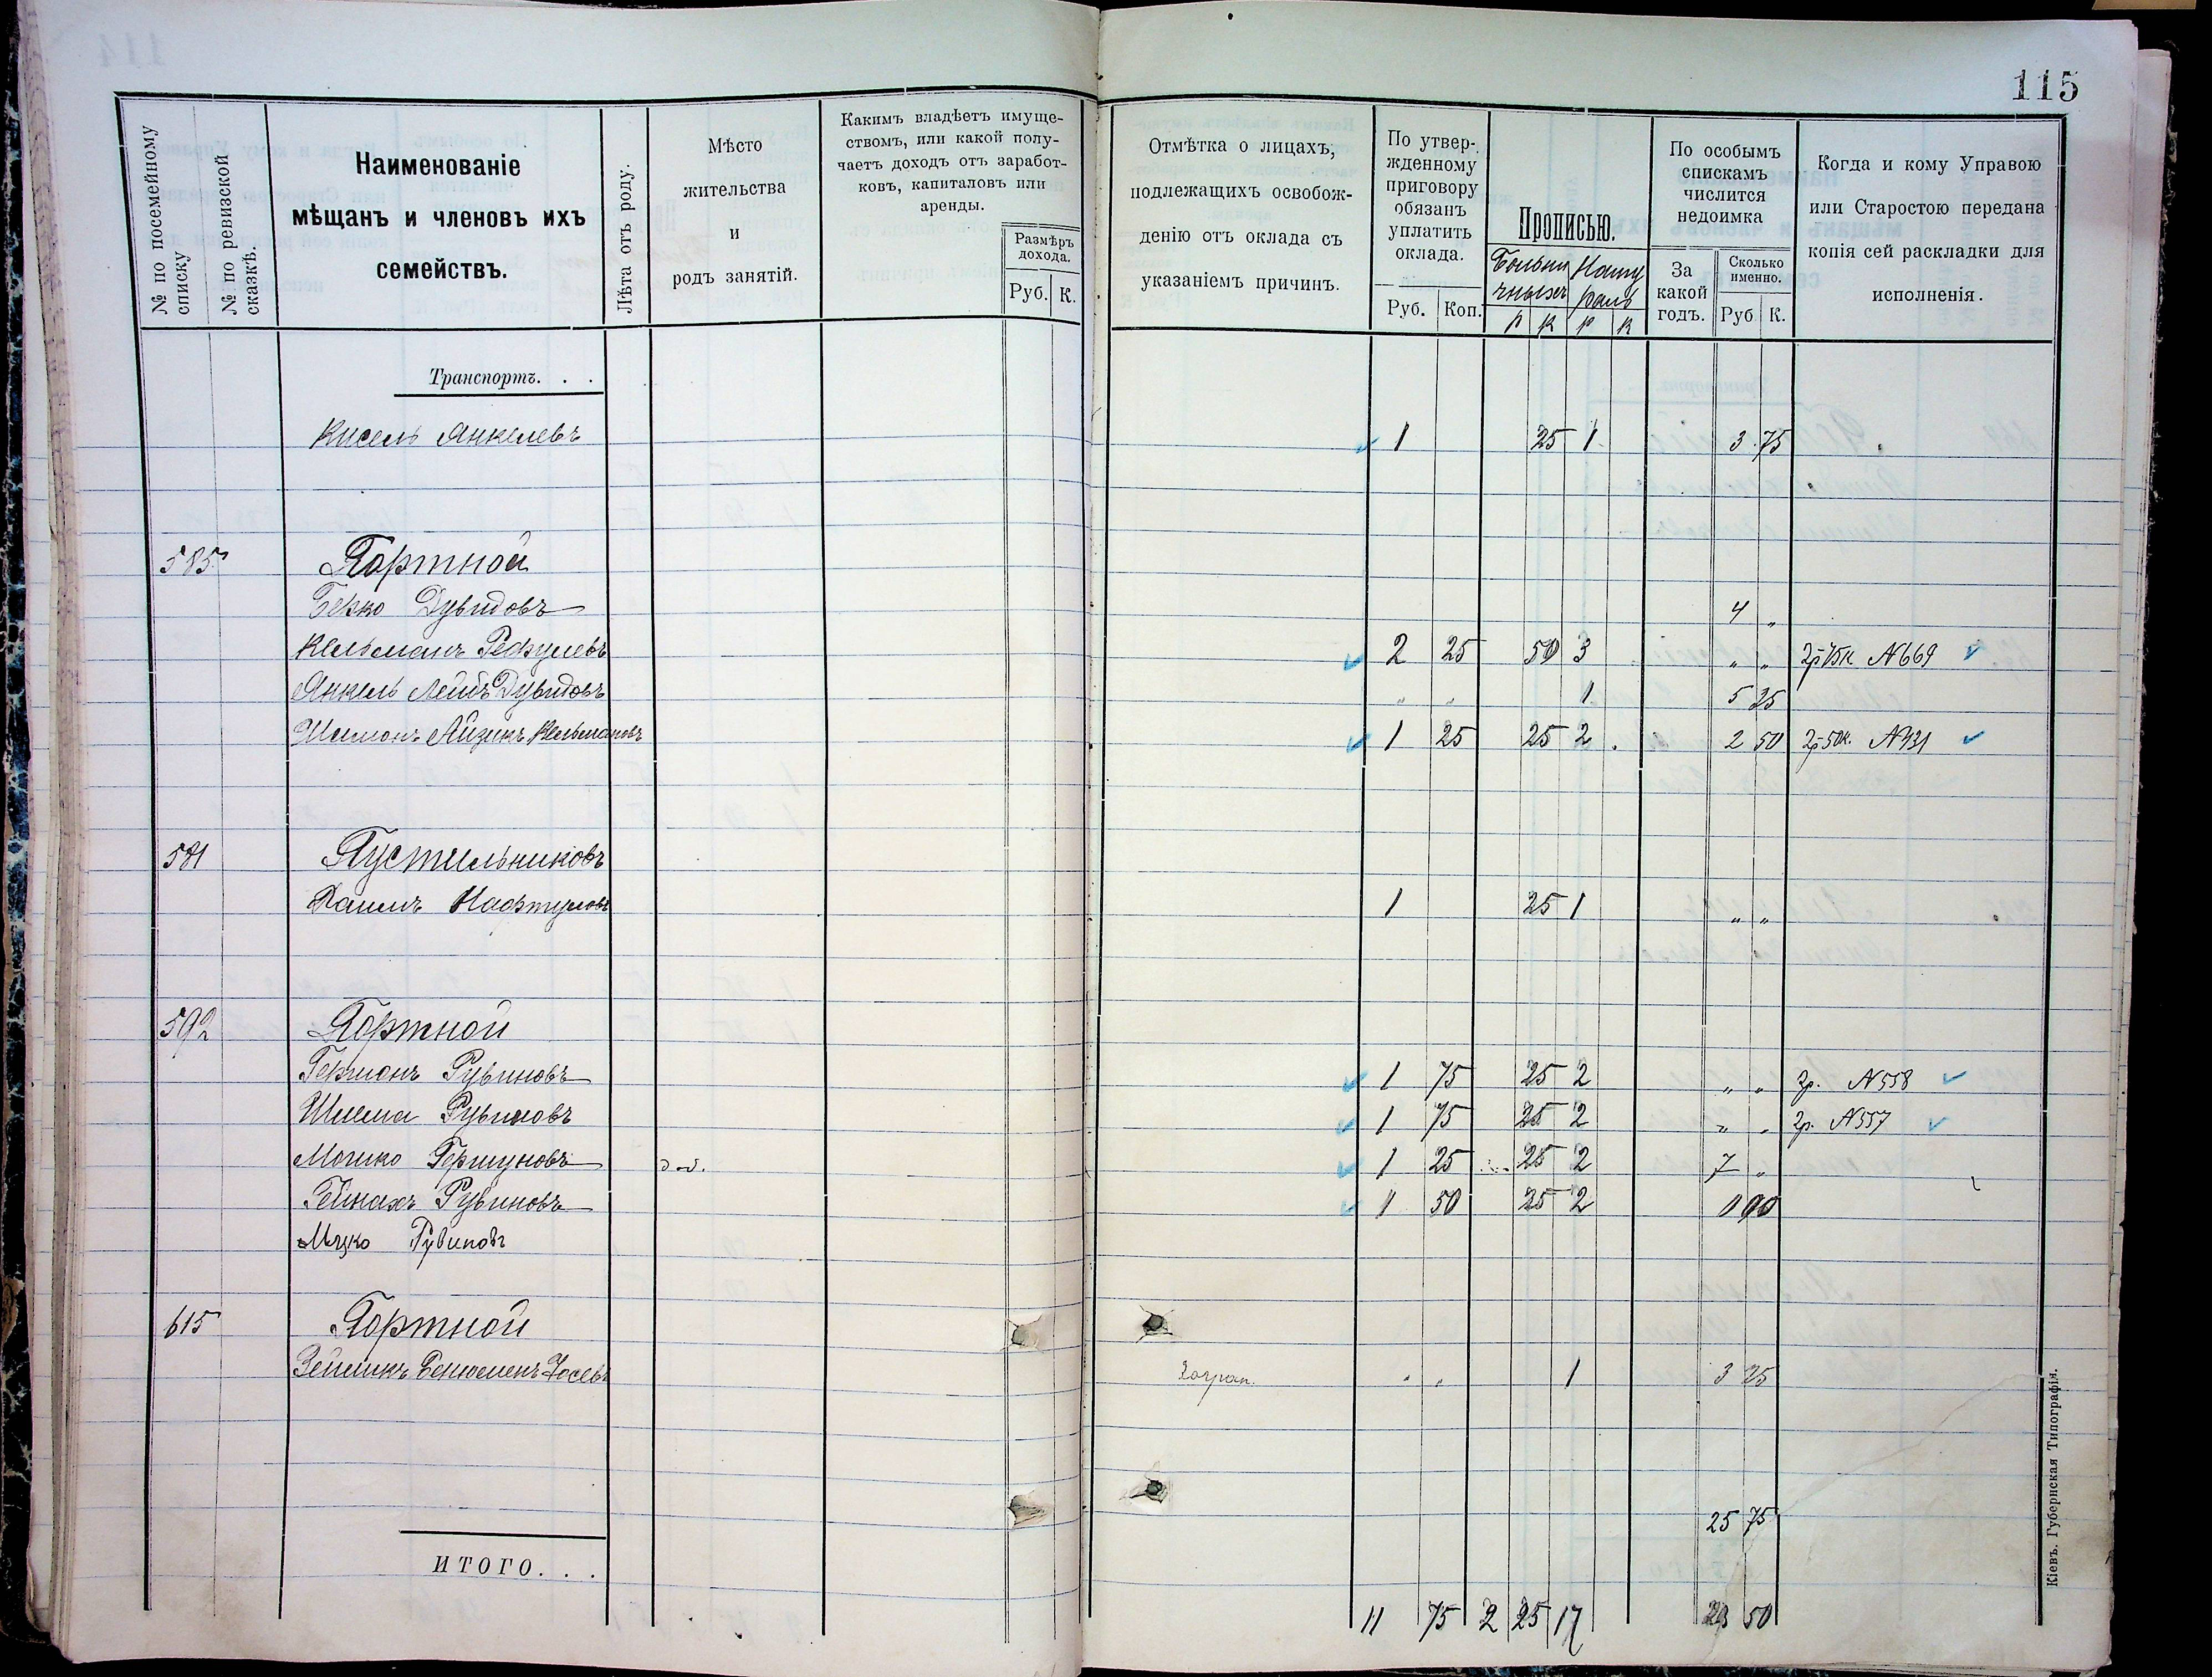 115
№ по посемейному списку
№ по ревизской сказкѣ.
Наименованіе
мѣщанъ и членовъ ихъ
семействъ.
Лѣта отъ роду.
Мѣсто
жительства
и
родъ занятій.
Какимъ владѣетъ имуще-
ствомъ, или какой полу-
чаетъ доходъ отъ заработ-
ковъ, капиталовъ или
аренды.
Размѣръ
дохода.
Руб. К.
Отмѣтка о лицахъ,
подлежащихъ освобож-
денію отъ оклада съ
указаніемъ причинъ.
По утвер-
жденному
приговору
обязанъ
уплатить
оклада.
Руб. Коп.
Прописью.
Больни Нату
чныхъ раль
р к р к
По особымъ
спискамъ
числится
недоимка
За
какой
годъ.
Сколько
именно.
Руб К.
Когда и кому Управою
или Старостою передана
копія сей раскладки для
исполненія.
Транспортъ. . .
Кисель Янкелевъ 1 25 1 3 75
585 Портной
Берко Дувидовъ 4 "
Кельманъ 2 25 50 3 " " 2р 75к №669
Янкель Лейбъ Дувидовъ " " 1 5 25
Шимонъ Айзикъ Кельмановъ 1 25 25 2 2 50 2р 50к. №931
581 Пустильниковъ
Хаимъ Нафтуловъ 1 25 1 " "
592 Портной
Гершонъ Рувиновъ 1 75 25 2 " " 2р. №558
Шлема Рувиновъ 1 75 25 2 " " 2р. №557
Мошко Гершуновъ 1 25 25 2 7 "
Гейнахъ Рувиновъ 1 50 25 2
Ицко Рувиновъ
615 Портной
Зейликъ Бенюменъ Іосевъ " " 1 3 25
25 75
ИТОГО. . .
11 75 2 25 17 50
Кіевъ. Губернская Типографія.